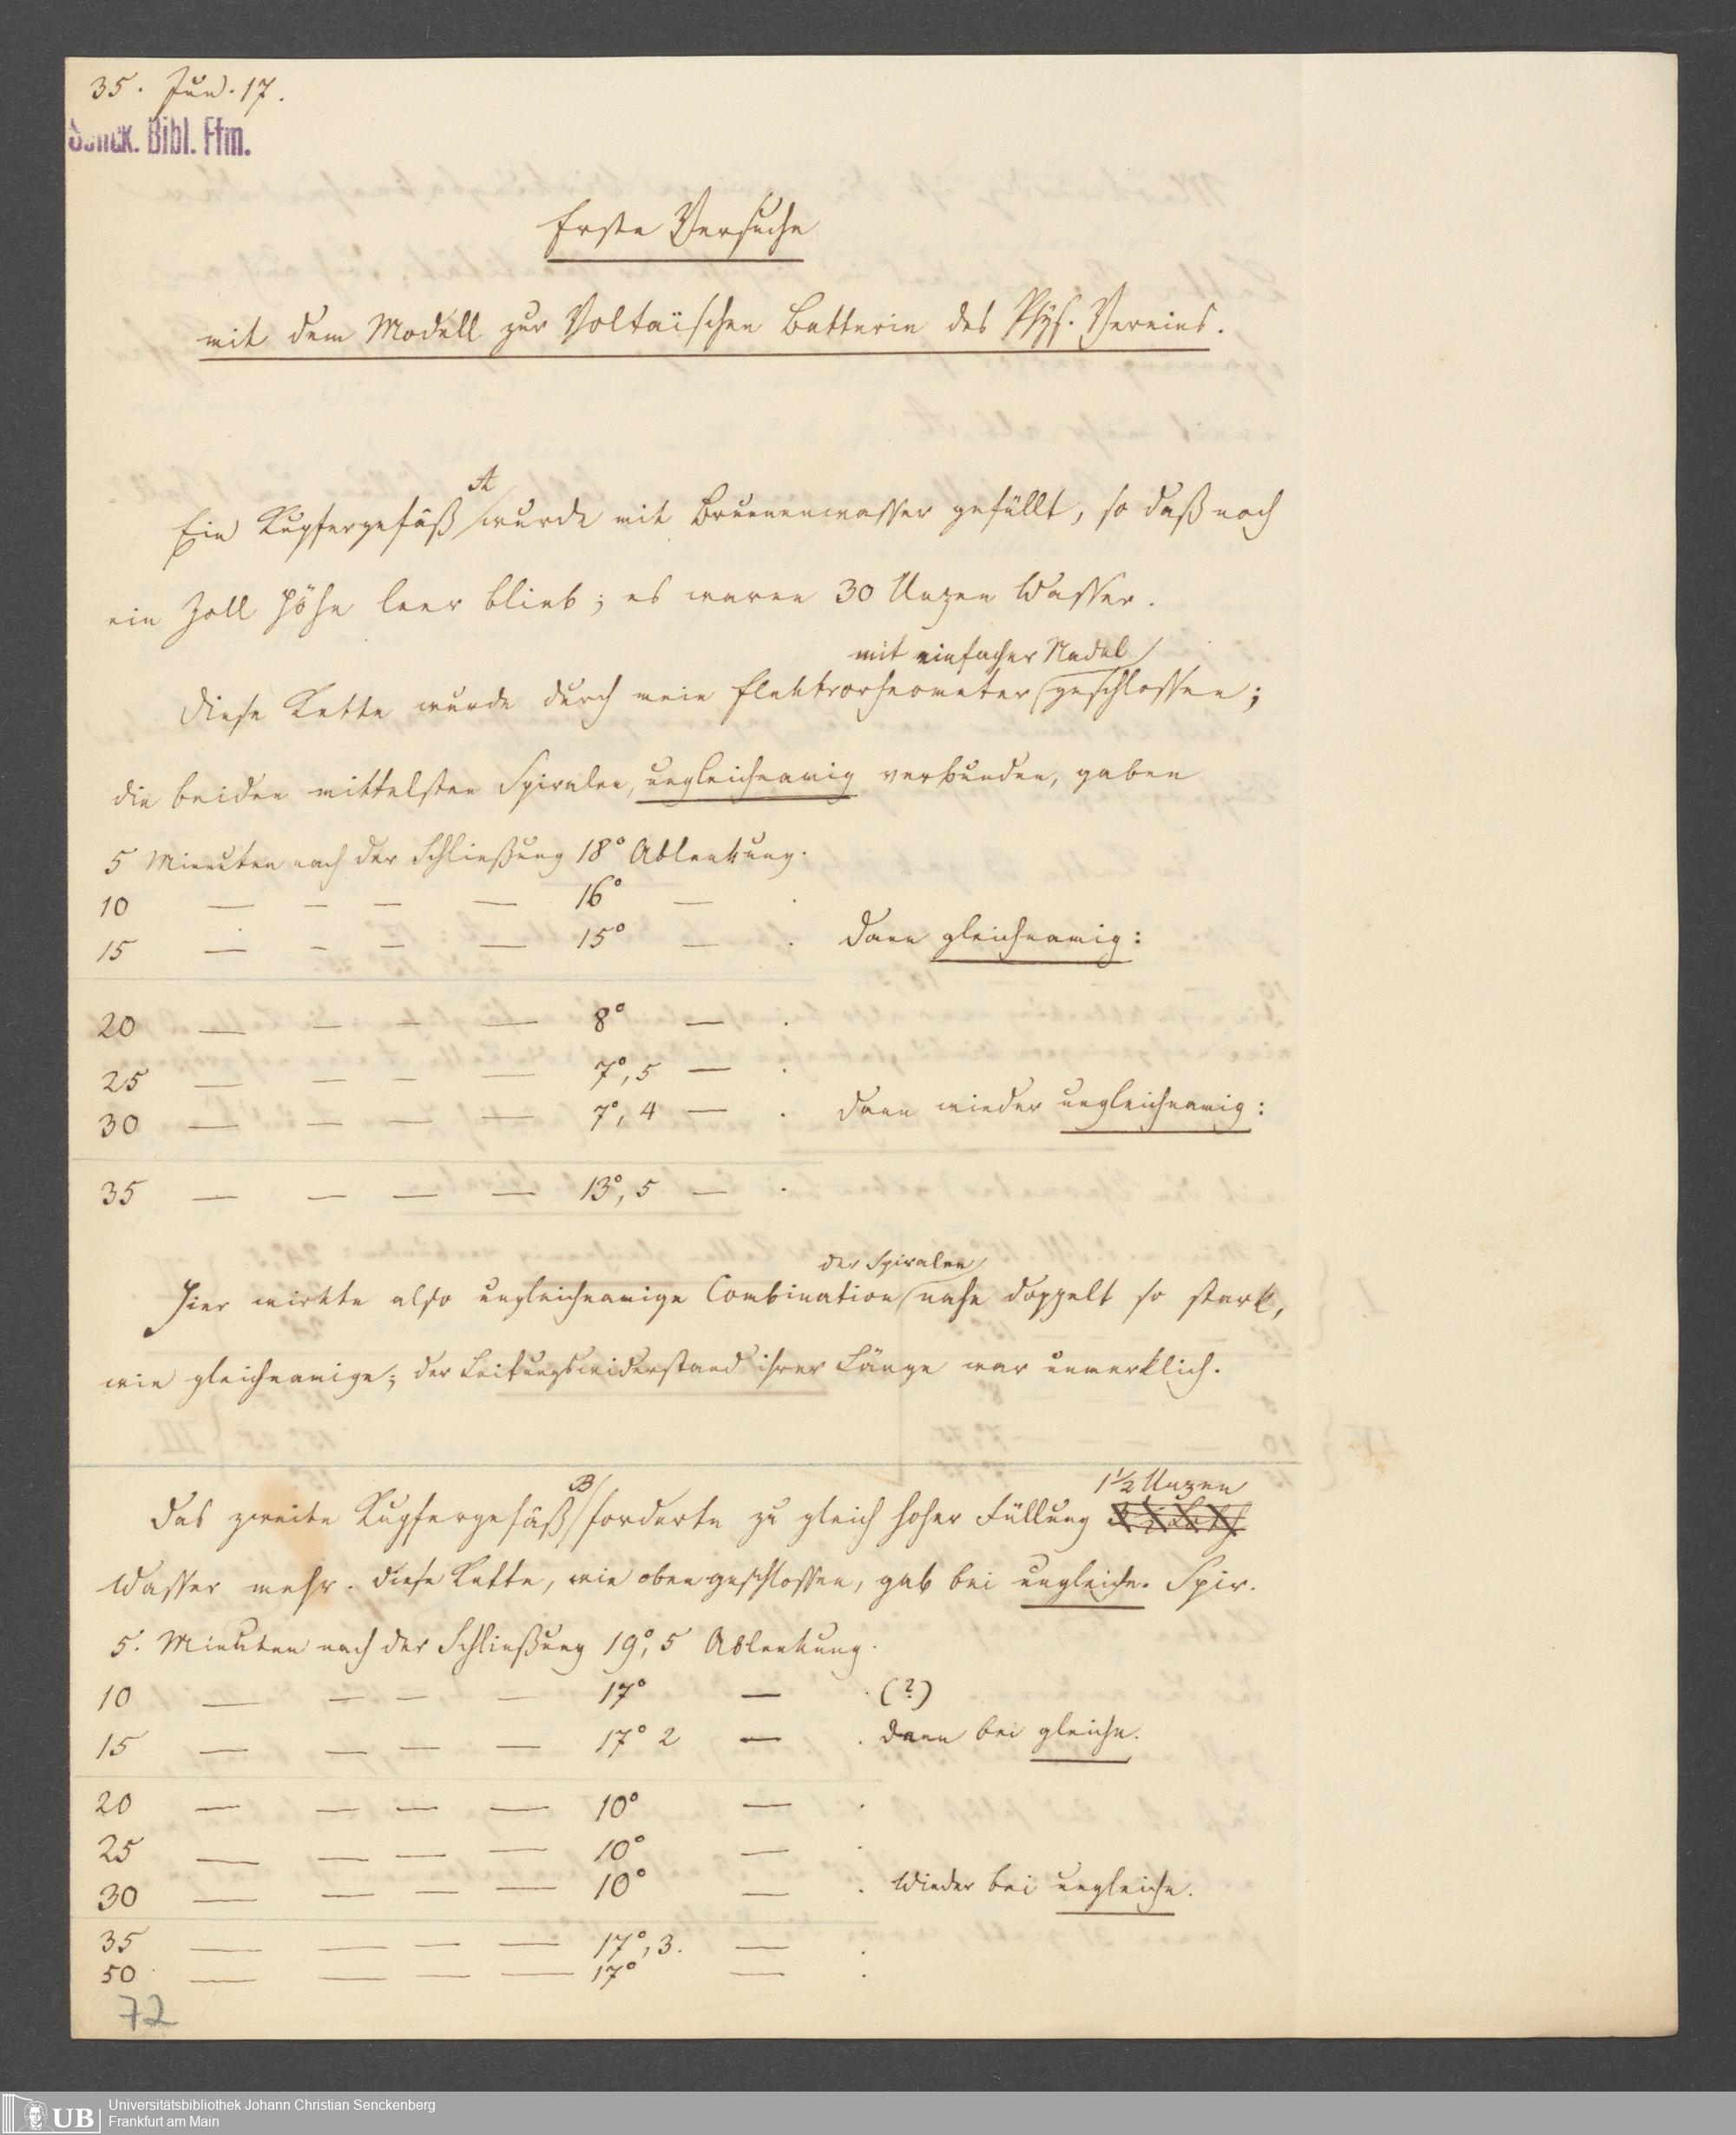 35. Jun. 17.
Senck. Bibl. Ffm.
Erste Versuche
mit dem Modell zur Voltaïschen Batterie des Phys. Vereins.
A
Ein Kupfergefäß wurde mit Brunnenwasser gefüllt, so daß noch
ein Zoll Höhe leer blieb; es waren 30 Unzen Wasser.
mit einfacher Nadel
Diese Kette wurde durch mein Elektrorheometer geschlossen;
die beiden mittelsten Spiralen, ungleichnamig verbunden, gaben
5 Minuten nach der Schließung 18° Ablenkung.
10 — — — — 16° — .
15 — — — — 15° — . Dann gleichnamig:
20 — — — — 8° — .
25 — — — — 7°,5 — .
30 — — — — 7°,4 — . Dann wieder ungleichnamig:
35 — — — — 13°,5 — .
der Spiralen
Hier wirkte also ungleichnamige Combination nahe doppelt so stark,
wie gleichnamige; der Leitungswiderstand ihrer Länge war unmerklich.
B 1½ Unzen
Das zweite Kupfergefäß forderte zu gleich hoher Füllung
Wasser mehr. Diese Kette, wie oben geschlossen, gab bei ungleichn. Spir.
5. Minuten nach der Schließung 19°,5 Ablenkung.
10 — — — — 17° — . (?)
15 — — — — 17° 2 — . Dann bei gleichn.
20 — — — — 10° — .
25 — — — — 10° — .
30 — — — — 10° — . Wieder bei ungleichn.
35 — — — — 17°,3. — .
50 — — — — 17° — .
72
UB
Universitätsbibliothek Johann Christian Senckenberg
Frankfurt am Main